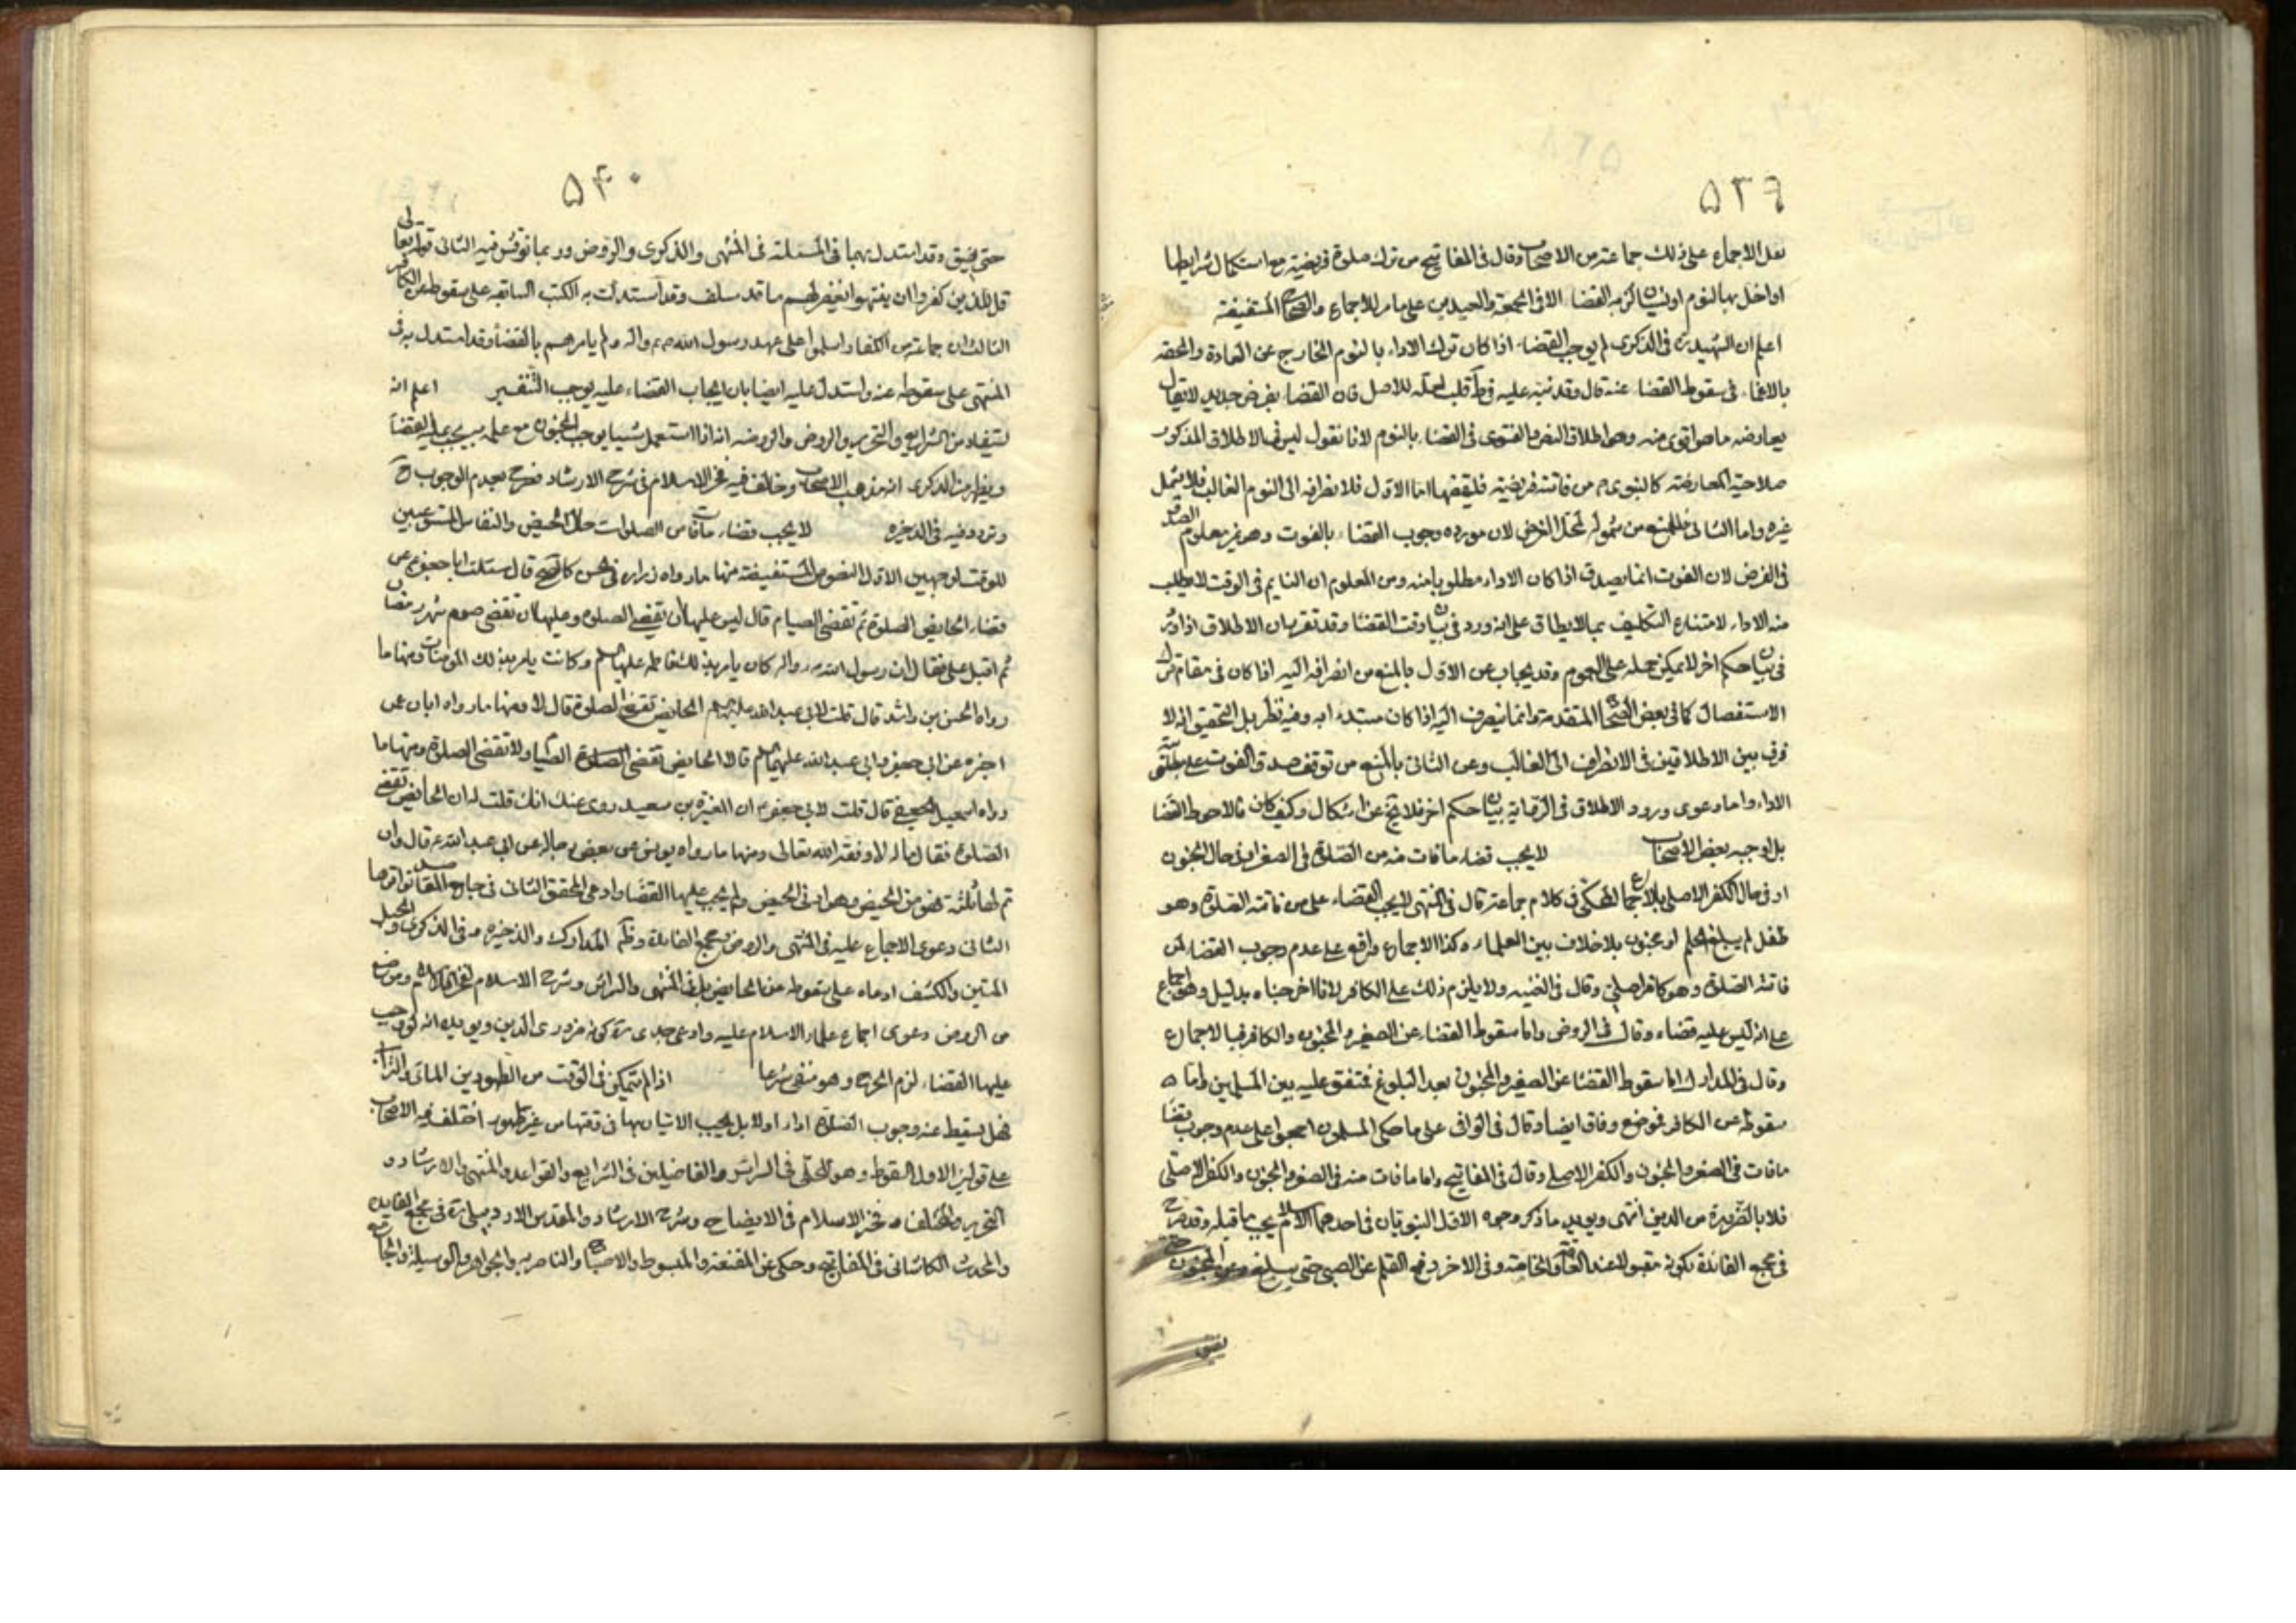 ۵۳۹
نقل الاجماع على ذلك جماعة من الاصحاب وقال فى المفاتيح من ترك صلوة فريضة مع استكمال شرايطها
او اخل بها لنوم او نسيان لزمه القضا الا فى الجمعة والعيدين على ما مر للاجماع والصحاح المستفيضة
اعلم ان الشهيد ره فى الذكرى لم يوجب القضاء اذا كان ترك الاداء بالنوم الخارج عن العادة والحقه
بالاغماء فى سقوط القضاء عنه قال وقد نبه عليه فى ط قلت لعله للاصل فان القضاء بفرض جديد لا يقال
يعارضه ما هو اقوى منه وهو اطلاق النص والفتوى فى القضاء بالنوم لانا نقول ليس فى الاطلاق المذكور
صلاحية المعارضة كالنبوى م من فاتته فريضة فليقضها اما الاول فلانصرافه الى النوم الغالب فلا يشمل
غيره واما الثانى فللمنع من شموله لمحل الفرض لان مورده وجوب القضاء بالفوت وهو غير معلوم الصدق
فى الفرض لان الفوت انما يصدق اذا كان الاداء مطلوبا منه ومن المعلوم ان النايم فى الوقت لا يطلب
منه الاداء لامتناع التكليف بما لا يطاق على انه ورد فى بيان وقت القضا وقد تقرر ان الاطلاق اذا ورد
فى بيان حكم اخر لا يمكن حمله على العموم وقد يجاب عن الاول بالمنع من انصرافه اليه اذا كان فى مقام ترك
الاستفصال كما فى بعض الصحاح المتقدمة وانما ينصرف اليه اذا كان مبتدء به وفيه نظر بل التحقيق انه لا
فرق بين الاطلاقين فى الانصراف الى الغالب وعن الثانى بالمنع من توقف صدق الفوت على
الاداء واما دعوى ورود الاطلاق فى الرواية بيان حكم اخر فلا تخ عن اشكال وكيف كان فالاحوط القضا
بل اوجبه بعض الاصحاب لا يجب قضاء ما فات منه من الصلوة فى الصغر او فى حال الجنون
او فى حال الكفر الاصلى بالاجماع المحكى فى كلام جماعة قال فى المنتهى لا يجب القضاء على من فاتته الصلوة وهو
طفل لم يبلغ الحلم او مجنون بلا خلاف بين العلماء وكذا الاجماع واقع على عدم وجوب القضاء لمن
فاتته الصلوة وهو كافر اصلى وقال فى الغنيه ولا يلزم ذلك على الكافر لانا اخرجناه بدليل وهو اجماع
على انه ليس عليه قضاء وقال فى الروض واما سقوط القضاء عن الصغير والمجنون والكافر فبالاجماع
وقال فى المدارك اما سقوط القضا عن الصغير والمجنون بعد البلوغ فمتفق عليه بين المسلمين واما
سقوطه عن الكافر فموضع وفاق ايضا وقال فى الوافى على ما حكى المسلمون اجمعوا على عدم وجوب قضا
ما فات فى الصغر والجنون والكفر الاصلى وقال فى المفاتيح واما ما فات منه فى الصغر والجنون والكفر الاصلى
فلا بالضرورة من الدين انتهى ويؤيد ما ذكر وجوه الاول النبويان فى احدهما الاسلام يجب ما قبله وقد صرح
فى مجمع الفائدة بكونه مقبولا عند العامة والخاصة وفى الاخر رفع القلم عن الصبى حتى يبلغ وعن المجنون
يفيق
۵۴۰
حتى يفيق وقد استدل بهما فى المسئلة فى المنتهى والذكرى والروض وربما نوقش فيه الثانى قوله تعالى
قل للذين كفروا ان ينتهوا يغفر لهم ما قد سلف وقد استدلت به الكتب السابقه على سقوطه عن الكافر
الثالث ان جماعة من الكفار اسلموا على عهد رسول الله ص واله ولم يامرهم بالقضا وقد استدل به فى
المنتهى على سقوطه عنه واستدل عليه ايضا بان ايجاب القضاء عليه يوجب التنفير اعلم انه
يستفاد من الشرايع والتحرير والروض والروضه انه اذا استعمل شيئا يوجب الجنون مع علمه يجب عليه القضا
ويظهر من الذكرى انه مذهب الاصحاب وخالف فيه فخر الاسلام فى شرح الارشاد فصرح بعدم الوجوب ح
وتردد فيه فى الذخيره لا يجب قضاء ما فات من الصلوات حال الحيض والنفاس المستوعبين
للوقت لوجهين الاول النصوص المستفيضة منها ما رواه زراره فى الحسن كالصحيح قال سئلت ابا جعفر ع عن
قضاء الحايض الصلوة ثم تقضى الصيام قال ليس عليها ان تقضى الصلوة وعليها ان تقضى صوم شهر رمضان
ثم اقبل على فقال ان رسول الله ص واله كان يامر بذلك فاطمة عليها السلم وكانت يامر بذلك المؤمنات ومنها ما
رواه الحسن بن راشد قال قلت لابى عبد الله عليه السلم الحايض تقضى الصلوة قال لا ومنها ما رواه ابان عمن
اخبره عن ابى جعفر وابى عبد الله عليهما السلم قالا الحايض تقضى الصيام ولا تقضى الصلوة ومنها ما
رواه اسمعيل الجعفى قال قلت لابى جعفر ع ان المغيرة بن سعيد روى عنك انك قلت له ان الحايض تقضى
الصلوة فقال ما له لا وفقه الله تعالى ومنها ما رواه يونس عن بعض رجاله عن ابى عبد الله ع قال وان
تم لها ثلثة فهو من الحيض وهو ادنى الحيض ولم يجب عليها القضا وادعى المحقق الثانى فى جامع المقاصد تواترها
الثانى دعوى الاجماع عليه فى المنتهى والروض ومجمع الفائدة وظ المدارك والذخيره وفى الذكرى والحبل
المتين والكشف ادعاه على سقوطه عن الحايض بل فى المنتهى والسرائر وشرح الاسلام لفخر الاسلام وموضع
من الروض دعوى اجماع علماء الاسلام عليه وادعى جدى ره كونه ضرورى الدين ويؤيده انه لو وجب
عليها القضاء لزم الحرج وهو منفى شرعا اذا لم يتمكن فى الوقت من الطهورين الماء والتراب
فهل يسقط عنه وجوب الصلوة اداء او لا بل يجب الاتيان بها فى وقتها من غير طهور اختلف فيه الاصحاب
على قولين الاول السقوط وهو للحلى فى السرائر والفاضلين فى الشرايع والقواعد والمنتهى والارشاد و
التحرير والمختلف وفخر الاسلام فى الايضاح وشرح الارشاد والمقدس الاردبيلى ره فى مجمع الفايده
والمحدث الكاشانى فى المفاتيح وحكى عن المقنعة والمبسوط والاصباح والناصريه والجواهر والوسيلة والجامع